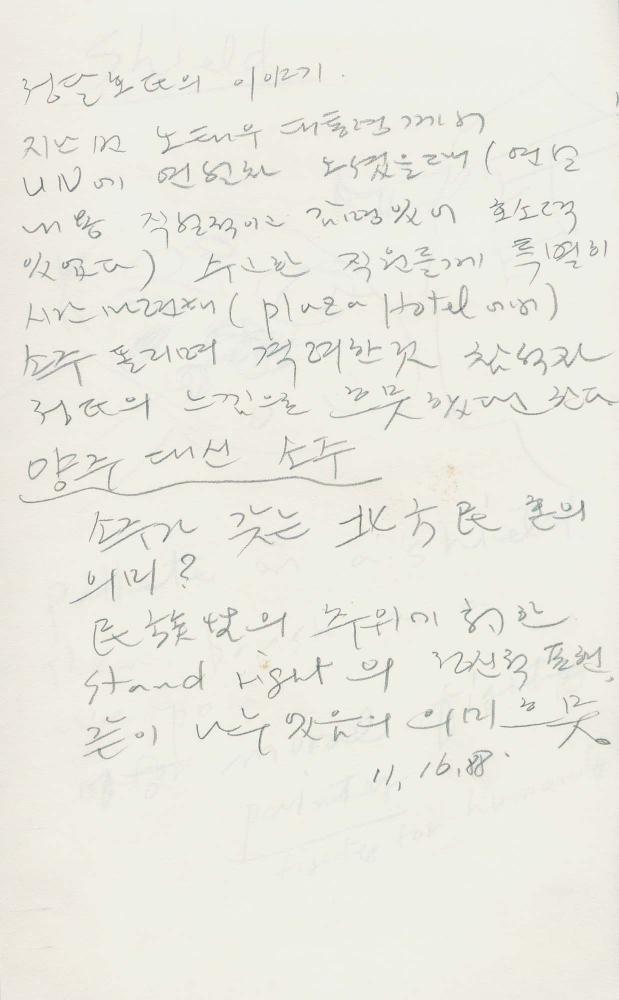 정달호 氏의 이야기.
지난번 노태우 대통령께서
UN에 연설차 오셨을때 (연설
내용 직설적이고 감명있어 호소력
있었다) 수고한 직원들께 특별히
시간 마련해 (plaza Hotel에서)
소주 돌리며 격려한 것 참석자
정氏의 느낌으로 흐뭇했다고 한다
양주 대신 소주
소주가 갖는 北方民 혼의
의미?
民族性의 주위에 대한
stand right 의 정신적 표현,
같이 나누었음의 의미 흐뭇.
11, 16, 88.